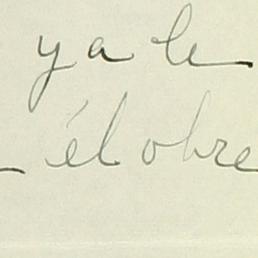 ya le
él obre